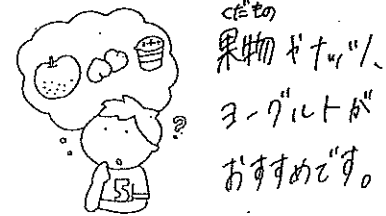 くだもの
果物やナッツ、
ヨーグルトが
おすすめです。
?
S